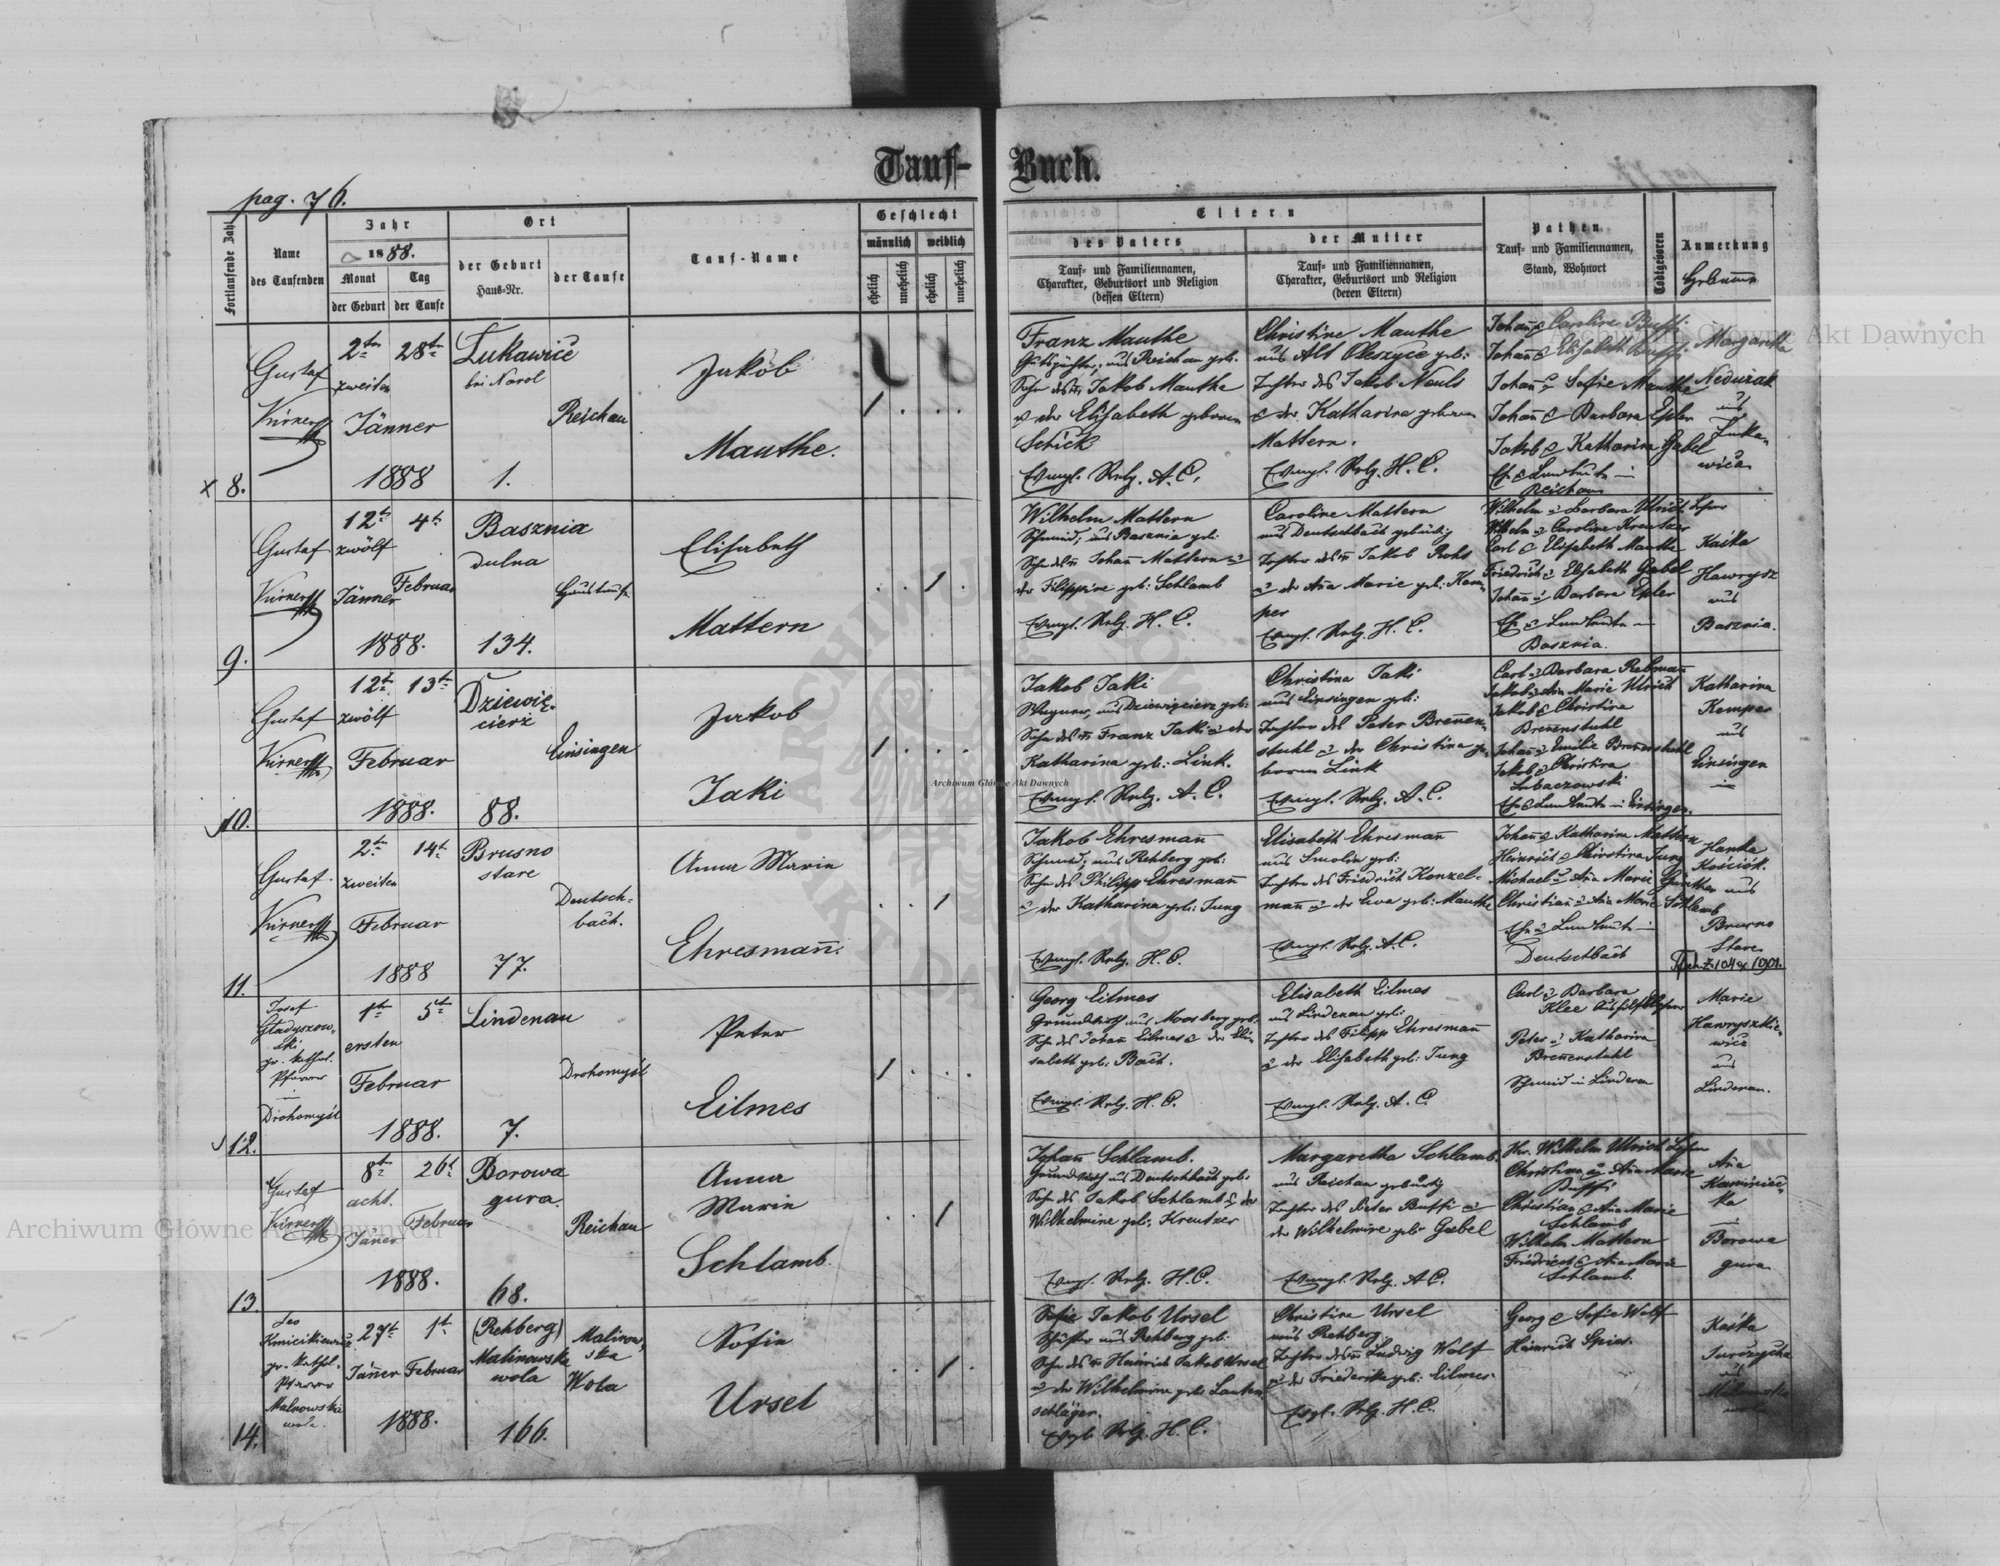 Tauf-Buch.
pag. 76.
Fortlaufende Zahl
Name
des Taufenden
Jahr
1888.
Monat
Tag
der Geburt
der Taufe
Ort
der Geburt
Haus-Nr.
der Taufe
Tauf-Name
Geschlecht
männlich
weiblich
ehelich
unehelich
ehelich
unehelich
Eltern
des Vaters
Tauf- und Familiennamen,
Charakter, Geburtsort und Religion
(dessen Eltern)
der Mutter
Tauf- und Familiennamen,
Charakter, Geburtsort und Religion
(deren Eltern)
Pathen
Tauf- und Familiennamen,
Stand, Wohnort
Todtgeboren
Anmerkung
x 8.
Gustaf
2ten 28ten
zweiten
Jänner
1888
Lukawice
bei Narol
1.
Reichau
Jakob
Mauthe.
1 . . .
Franz Mauthe
aus Reichau geb:
Sohn des Jakob Mauthe
der Elisabeth geboren
Schick
Evngl. Relg. A. C.
Christine Mauthe
aus Alt Oleszyce geb:
Tochter des Jakob Nauls
der Katharina geboren
Mattern.
Evngl. Relg. H. C.
Johann Caroline Buffi
Johann Elisabeth Buffi
Johann Sofie Mauthe
Johann Barbara Epler
Jakob Katharina Gabel
Reichau
Margaretha
Neduzak
aus
Luka-
wica
9.
Gustaf
12t 4t
zwölf
Jänner Februar
1888.
Basznia
dulna
134.
Haustaufe
Elisabeth
Mattern
. . 1 .
Wilhelm Mattern
Schmied, aus Basznia geb:
Sohn des Johann Mattern
der Filippine geb: Schlamb
Evngl. Relg. H. C.
Caroline Mattern
aus Deutschbach gebürtig
Tochter des Jakob
der Ana Marie geb: Kem-
per
Evngl. Relg. H. C.
Wilhelm Barbara Ulrich
Wilhelm Caroline Kreutzer
Carl Elisabeth Mauthe
Friedrich Elisabeth Gabel
Johann Barbara Epler
Basznia.
Kaśka
Hawrysz
aus
Basznia.
10.
Gustaf
12t 13t
zwölf
Februar
1888.
Dziewię-
cierz
88.
Einsingen
Jakob
Jaki
1 . . .
Jakob Jaki
Wagner, aus Dziewięcierz geb:
Sohn des Franz Jaki der
Katharina geb: Link.
Evngl. Relg. A. C.
Christina Jaki
aus Einsingen geb:
Tochter des Peter Brennen-
stuhl der Christina ge-
boren Link
Evngl. Relg. A. C.
Carl Barbara Rebmann
Jakob Ana Marie Ulrich
Jakob Christina
Brennenstuhl
Johann Emilie Brennenstuhl
Jakob Christina
Lubaczowski
Einsingen.
Katharina
Kemper
aus
Einsingen
11.
Gustaf
2t 14t
zweiten
Februar
1888
Brusno
stare
77.
Deutsch-
bach.
Anna Maria
Ehresmann.
. . 1
Jakob Ehresmann
Schmied, aus Rehberg geb:
Sohn des Philipp Ehresmann
der Katharina geb: Jung
Evngl. Relg. H. C.
Elisabeth Ehresmann
aus Smolin geb:
Tochter des Friedrich Konzel-
mann der Eva geb: Mauthe
Evngl. Relg. A. C.
Johann Katharina Mattern
Heinrich Christina Jung
Michael Ana Marie Günther
Christian Ana Marie Schlamb
Deutschbach
Hanka
Kościók
aus
Brusno
Stare
12.
Josef
Gładyszow-
ski
gr. kathol.
Pfarrer
Drohomyśl
1t 5t
ersten
Februar
1888.
Lindenau
7.
Drohomyśl
Peter
Eilmes
1 . . .
Georg Eilmes
Grundwirth aus Moosberg geb:
Sohn des Johann Eilmes der Eli-
sabeth geb: Bach.
Evngl. Relg. H. C.
Elisabeth Eilmes
aus Lindenau geb:
Tochter des Filipp Ehresmann
der Elisabeth geb: Jung
Evngl. Relg. A. C.
Carl Barbara
Klee
Peter Katharina
Brennenstuhl
Schmied in Lindenau
Marie
Hawryszkie-
wicz
aus
Lindenau.
13.
Gustaf
8t 26t
acht.
Jäner Februar
1888.
Borowa
gura.
68.
Reichau
Anna
Maria
Schlamb.
. . 1
Johann Schlamb.
Grundwirth aus Deutschbach geb:
Sohn des Jakob Schlamb der
Wilhelmine geb: Kreutzer
Evngl. Relg. H. C.
Margaretha Schlamb.
aus Reichau gebürtig
Tochter des Peter Buffi
der Wilhelmine geb: Gabel
Evngl. Relg. A. C.
Hr. Wilhelm Ulrich Lehrer
Christian Ana Marie
Buffi
Christian Ana Marie
Schlamb
Wilhelm Mattern
Friedrich Ana Marie
Schlamb.
Ana
Kaminiec-
ka
Borowa
gura
14.
Leo
gr. kathol.
Pfarrer
Malnowska
wola.
27t 1t
Jänner Februar
1888.
(Rehberg)
Malinowska
wola
166.
Malinow-
ska
Wola
Sofia
Ursel
. . 1 .
Jakob Ursel
aus Rehberg geb:
Sohn des Heinrich Jakob Ursel
der Wilhelmine geb: Lauten-
schläger.
Evgl. Relg. H. C.
Christine Ursel
aus Rehberg
Tochter des Ludwig Wolf
der Friederike geb: Eilmes.
Evgl. Relg. H. C.
Georg Sofie Wolf
Heinrich Spies.
Kaśka
Archiwum Główne Akt Dawnych
Archiwum Główne Akt Dawnych
Archiwum Główne Akt Dawnych